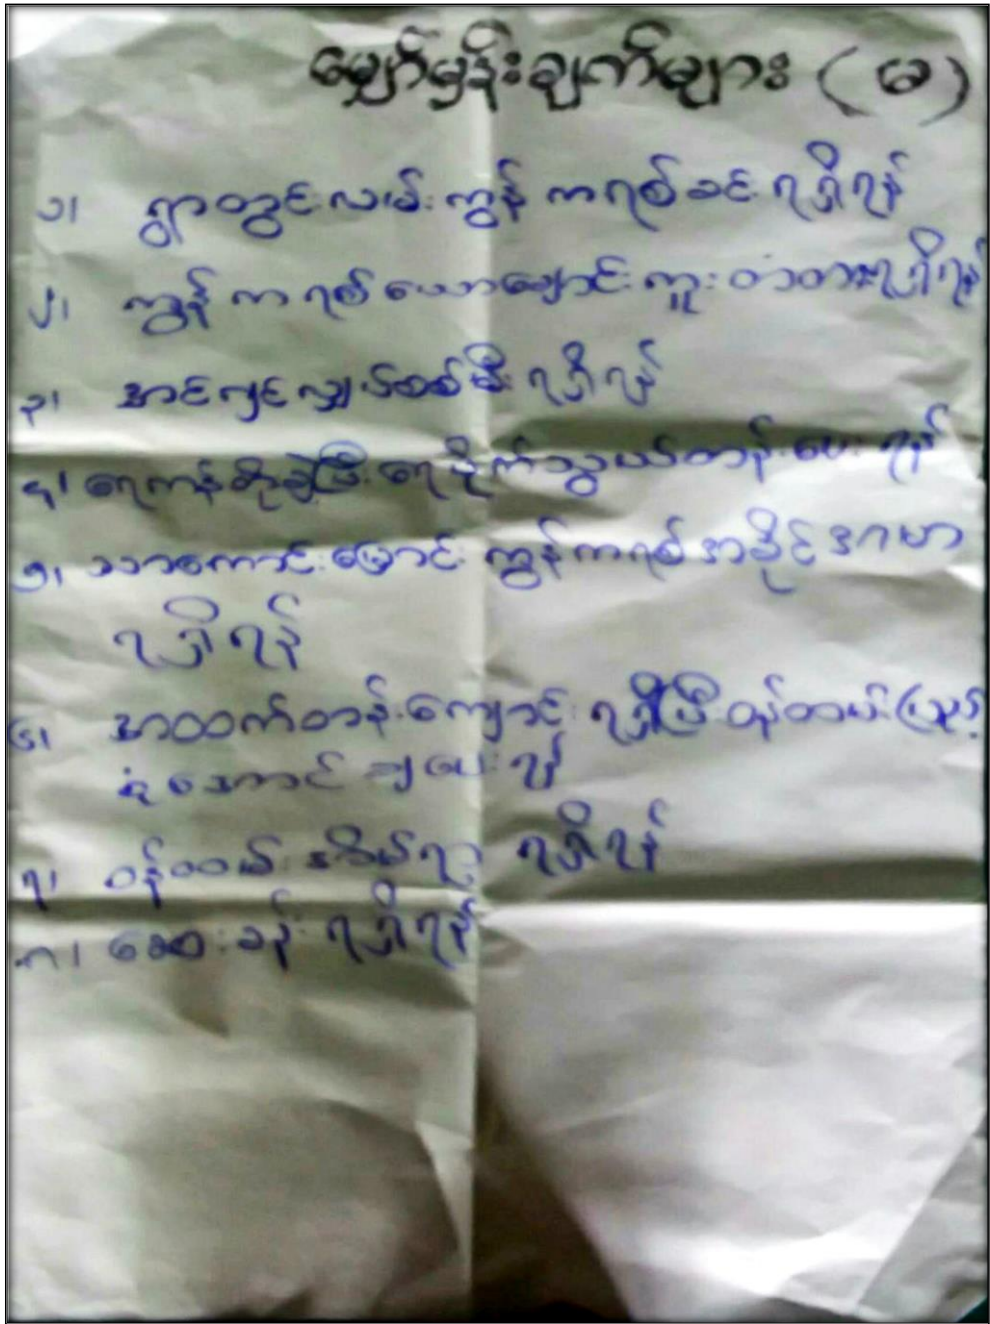 မျှော်မှန်းချက်များ ( မ )
၁၊ ရွာတွင်းလမ်း ကွန်ကရစ်ခင်း ရရှိရန်
၂၊ ကွန်ကရစ် ယောချောင်းကူး တံတားရရှိရန်
၃၊ အင်ဂျင်လျှပ်စစ်မီး ရရှိရန်
၄၊ ရေကန်တူးပြီး ရေပိုက်သွယ်တန်းပေးရန်
၅၊ သာကောင်းမြောင်း ကွန်ကရစ် အခိုင်အမာ
ရရှိရန်
၆၊ အထက်တန်းကျောင်း ရရှိပြီး ဝန်ထမ်းပြည့်
စုံအောင် ချပေးရန်
၇၊ ဝန်ထမ်း အိမ်ရာ ရရှိရန်
၈၊ ဆေးခန်း ရရှိရန်